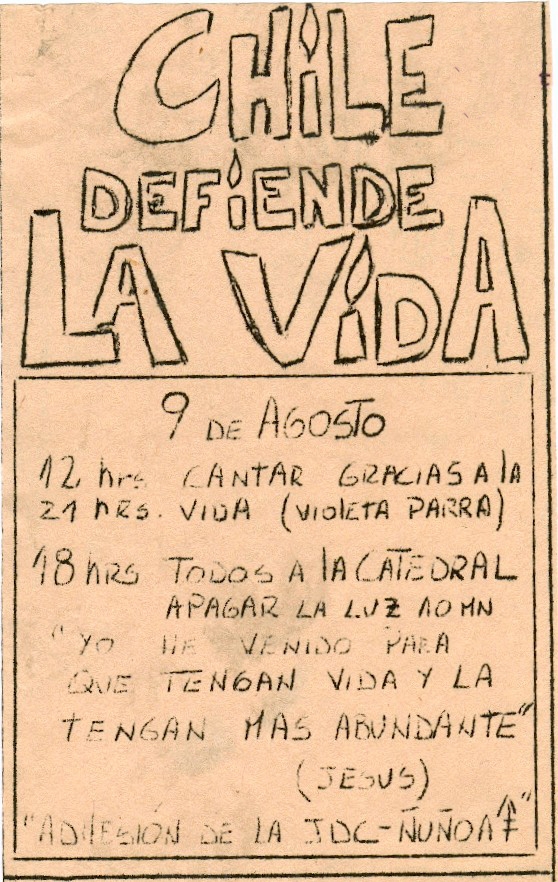 CHiLE
DEFiENDE
LA ViDA
9 DE AGOSTO
12 hrs CANTAR GRACIAS A la
21 hRS. VIDA (VIOLETA PARRA)
18 hRS TODOS A lA CATEDRAL
APAGAR LA LUZ 10 MN
"YO HE VENIDO PARA
QUE TENGAN VIDA Y LA
TENGAN MAS ABUNDANTE"
(JESUS)
"ADHESIÓN DE LA JDC-ÑUÑOA"